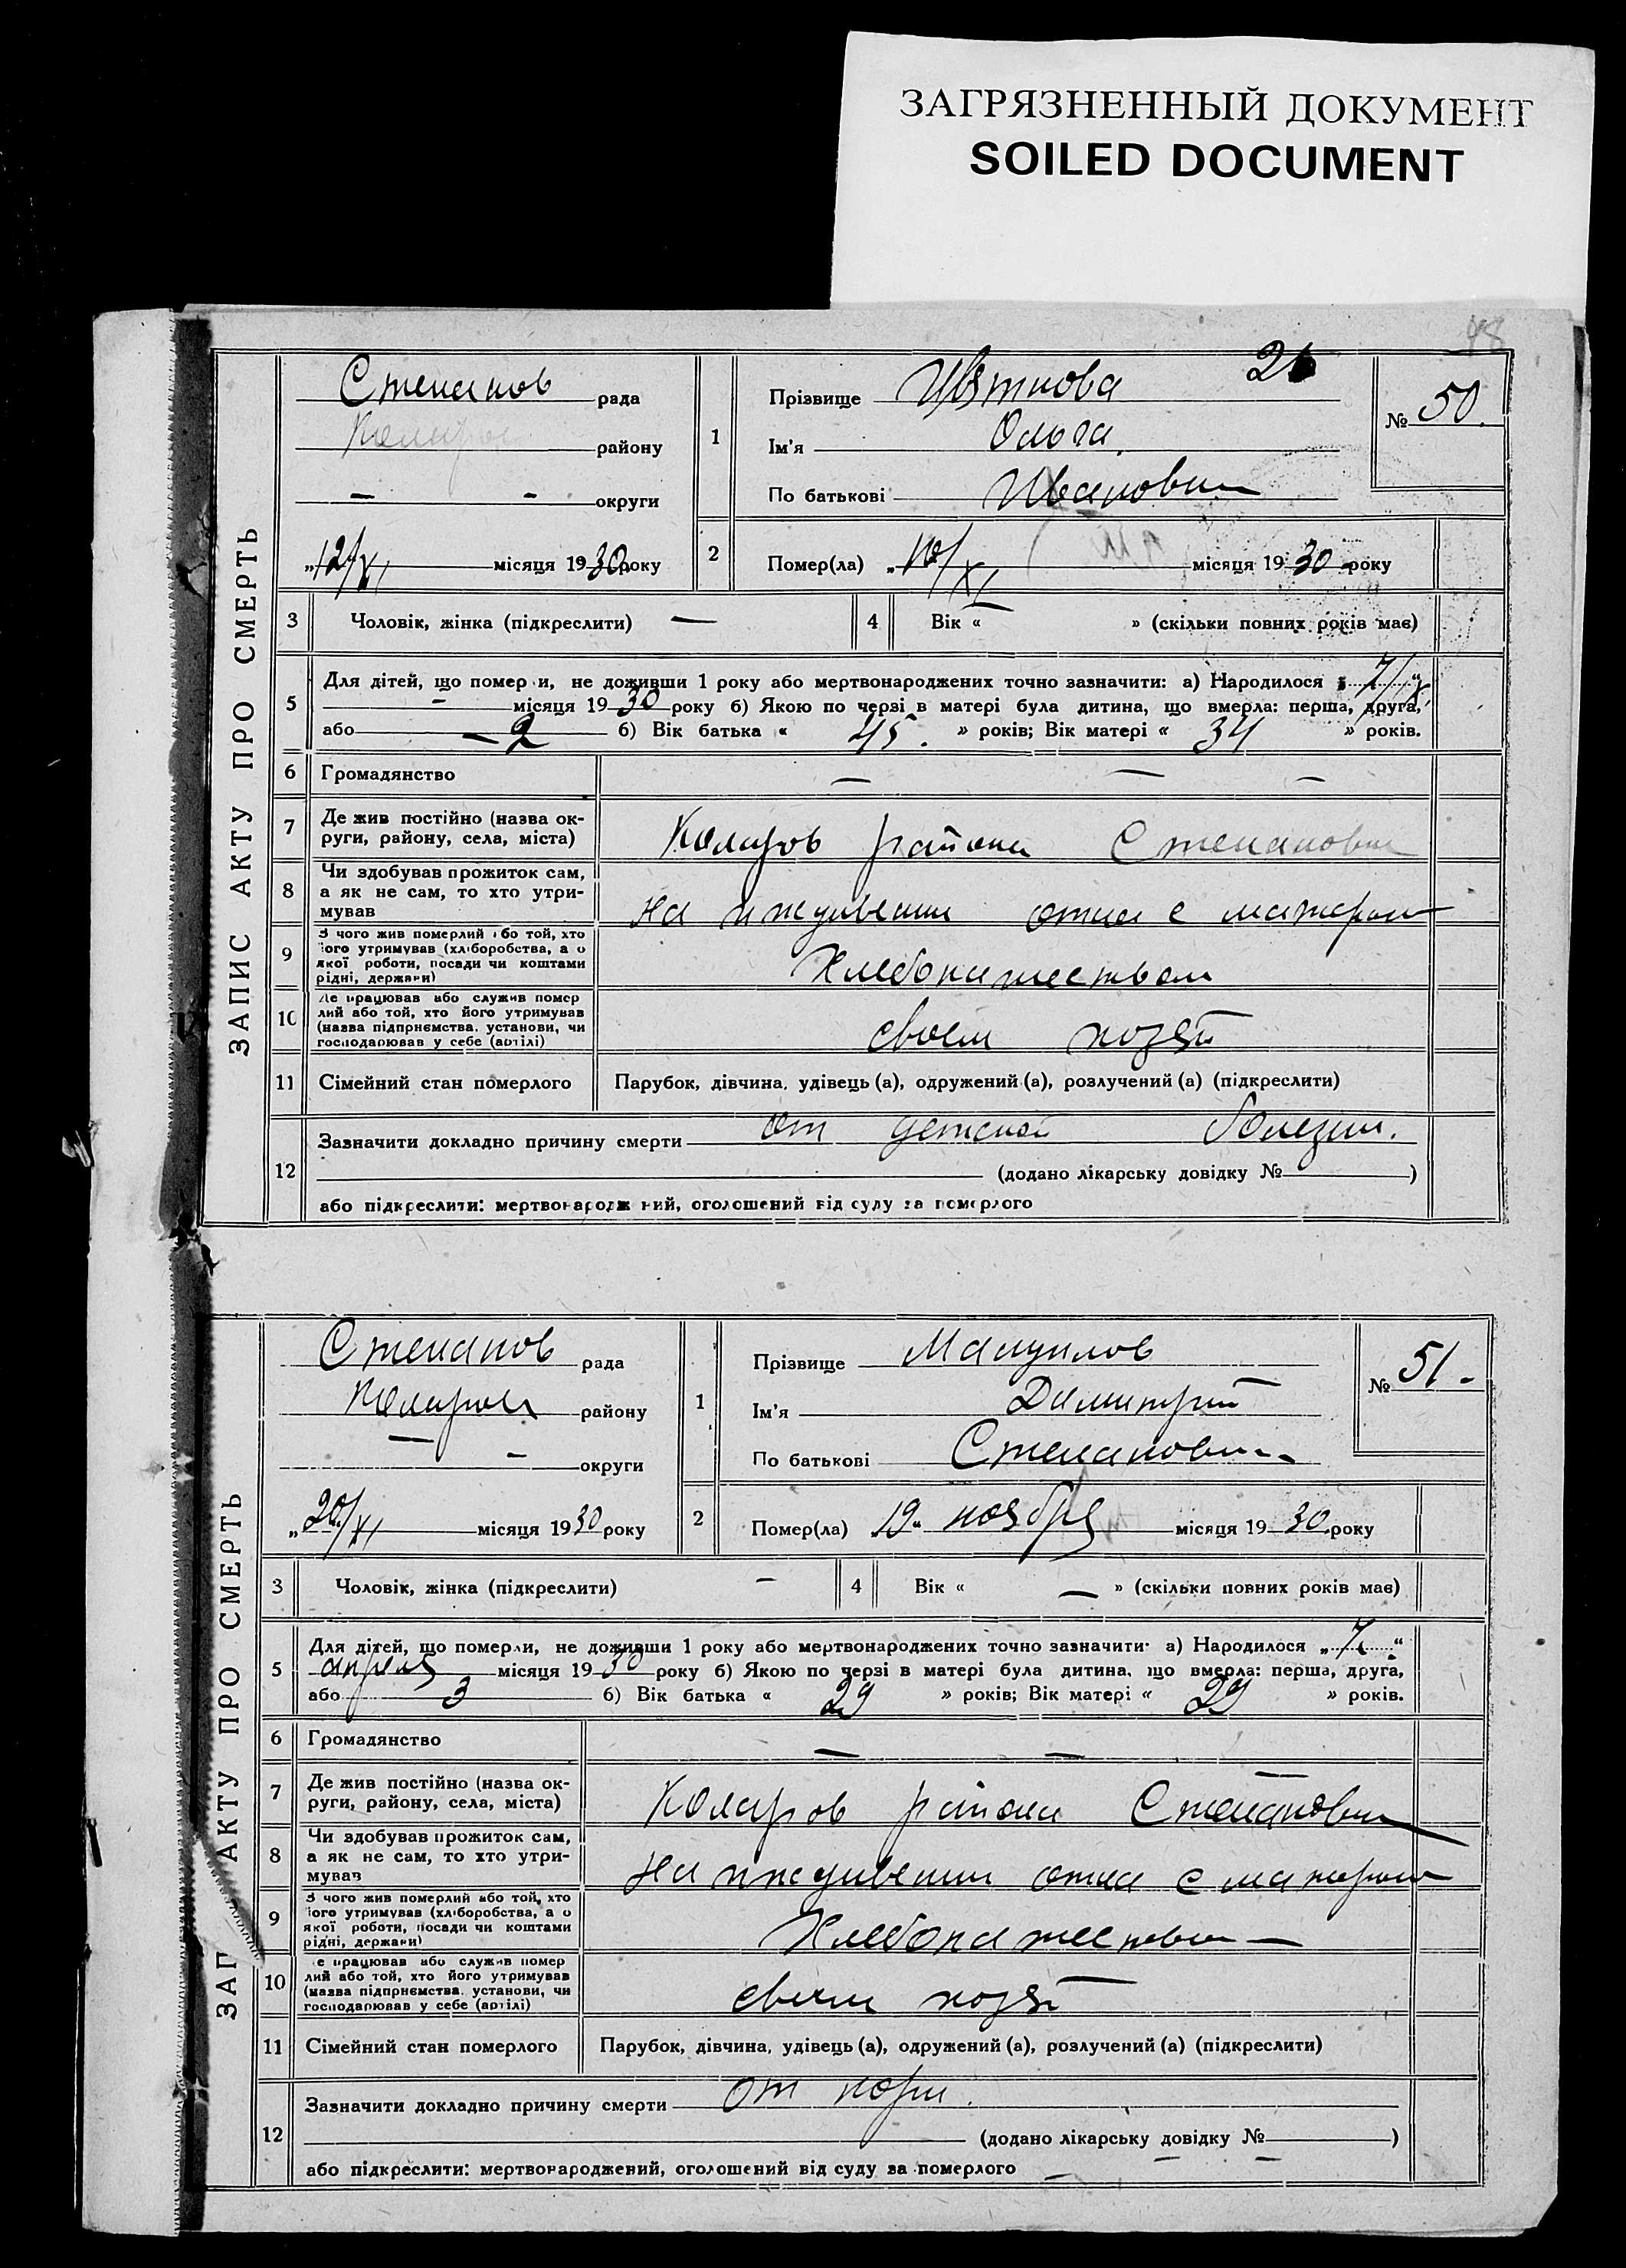 ЗАГРЯЗНЕННЫЙ ДОКУМЕНТ
SOILED DOCUMENT
48
ЗАПИС АКТУ ПРО СМЕРТЬ
Степанов рада
району
— - округи
„12/XI місяця 1930 року
1
Прізвище Цвяткова
Ім'я Ольга
По батькові Ивановна
№ 50.
2 Помер(ла) „10/XI місяця 1930 року
3 Чоловік, жінка (підкреслити) —
4 Вік « — » (скільки повних років має)
5 Для дітей, що померли, не доживши 1 року або мертвонароджених точно зазначити: а) Народилося „7/X“
- місяця 1930 року б) Якою по черзі в матері була дитина, що вмерла: перша, друга,
або —2 б) Вік батька « 45. » років; Вік матері « 34 » років.
6 Громадянство — — —
7 Де жив постійно (назва ок-
руги, району, села, міста)
Коларов района Степановка
8 Чи здобував прожиток сам,
а як не сам, то хто утри-
мував
На иждивении отца с матерью
9 З чого жив померлий або той, хто
його утримував (хліборобства, а о
якої роботи, посади чи коштами
рідні, держави)
Хлебопашеством
10 Де працював або служив помер
лий або той, хто його утримував
(назва підприємства, установи, чи
господарював у себе (артілі)
своем хозяй
11 Сімейний стан померлого Парубок, дівчина, удівець (а), одружений (а), розлучений (а) (підкреслити)
12 Зазначити докладно причину смерти от детской болезни.
(додано лікарську довідку № )
або підкреслити: мертвонароджений, оголошений від суду за померлого
ЗАП АКТУ ПРО СМЕРТЬ
Степанов рада
Коларов району
— - округи
„20/XI місяця 1930 року
1
Прізвище Мануилов
Ім'я Димитрий
По батькові Степанович
№ 51.-
2 Помер(ла) 19" ноября місяця 1930 року
3 Чоловік, жінка (підкреслити) -
4 Вік « — » (скільки повних років має)
5 Для дітей, що померли, не доживши 1 року або мертвонароджених точно зазначити: а) Народилося „7“
апреля місяця 1930 року б) Якою по черзі в матері була дитина, що вмерла: перша, друга,
або 3 б) Вік батька « 29 » років; Вік матері « 29 » років.
6 Громадянство — —
7 Де жив постійно (назва ок-
руги, району, села, міста)
Коларов района Степановка
8 Чи здобував прожиток сам,
а як не сам, то хто утри-
мував
На иждивении отца с матерью
9 З чого жив померлий або той, хто
його утримував (хліборобства, а о
якої роботи, посади чи коштами
рідні, держави)
Хлебопашество —
10 е працював або служив помер
лий або той, хто його утримував
(назва підприємства, установи, чи
господарював у себе (артілі)
своем хозяй
11 Сімейний стан померлого Парубок, дівчина, удівець (а), одружений (а), розлучений (а) (підкреслити)
12 Зазначити докладно причину смерти от кори.
(додано лікарську довідку № )
або підкреслити: мертвонароджений, оголошений від суду за померлого — — —